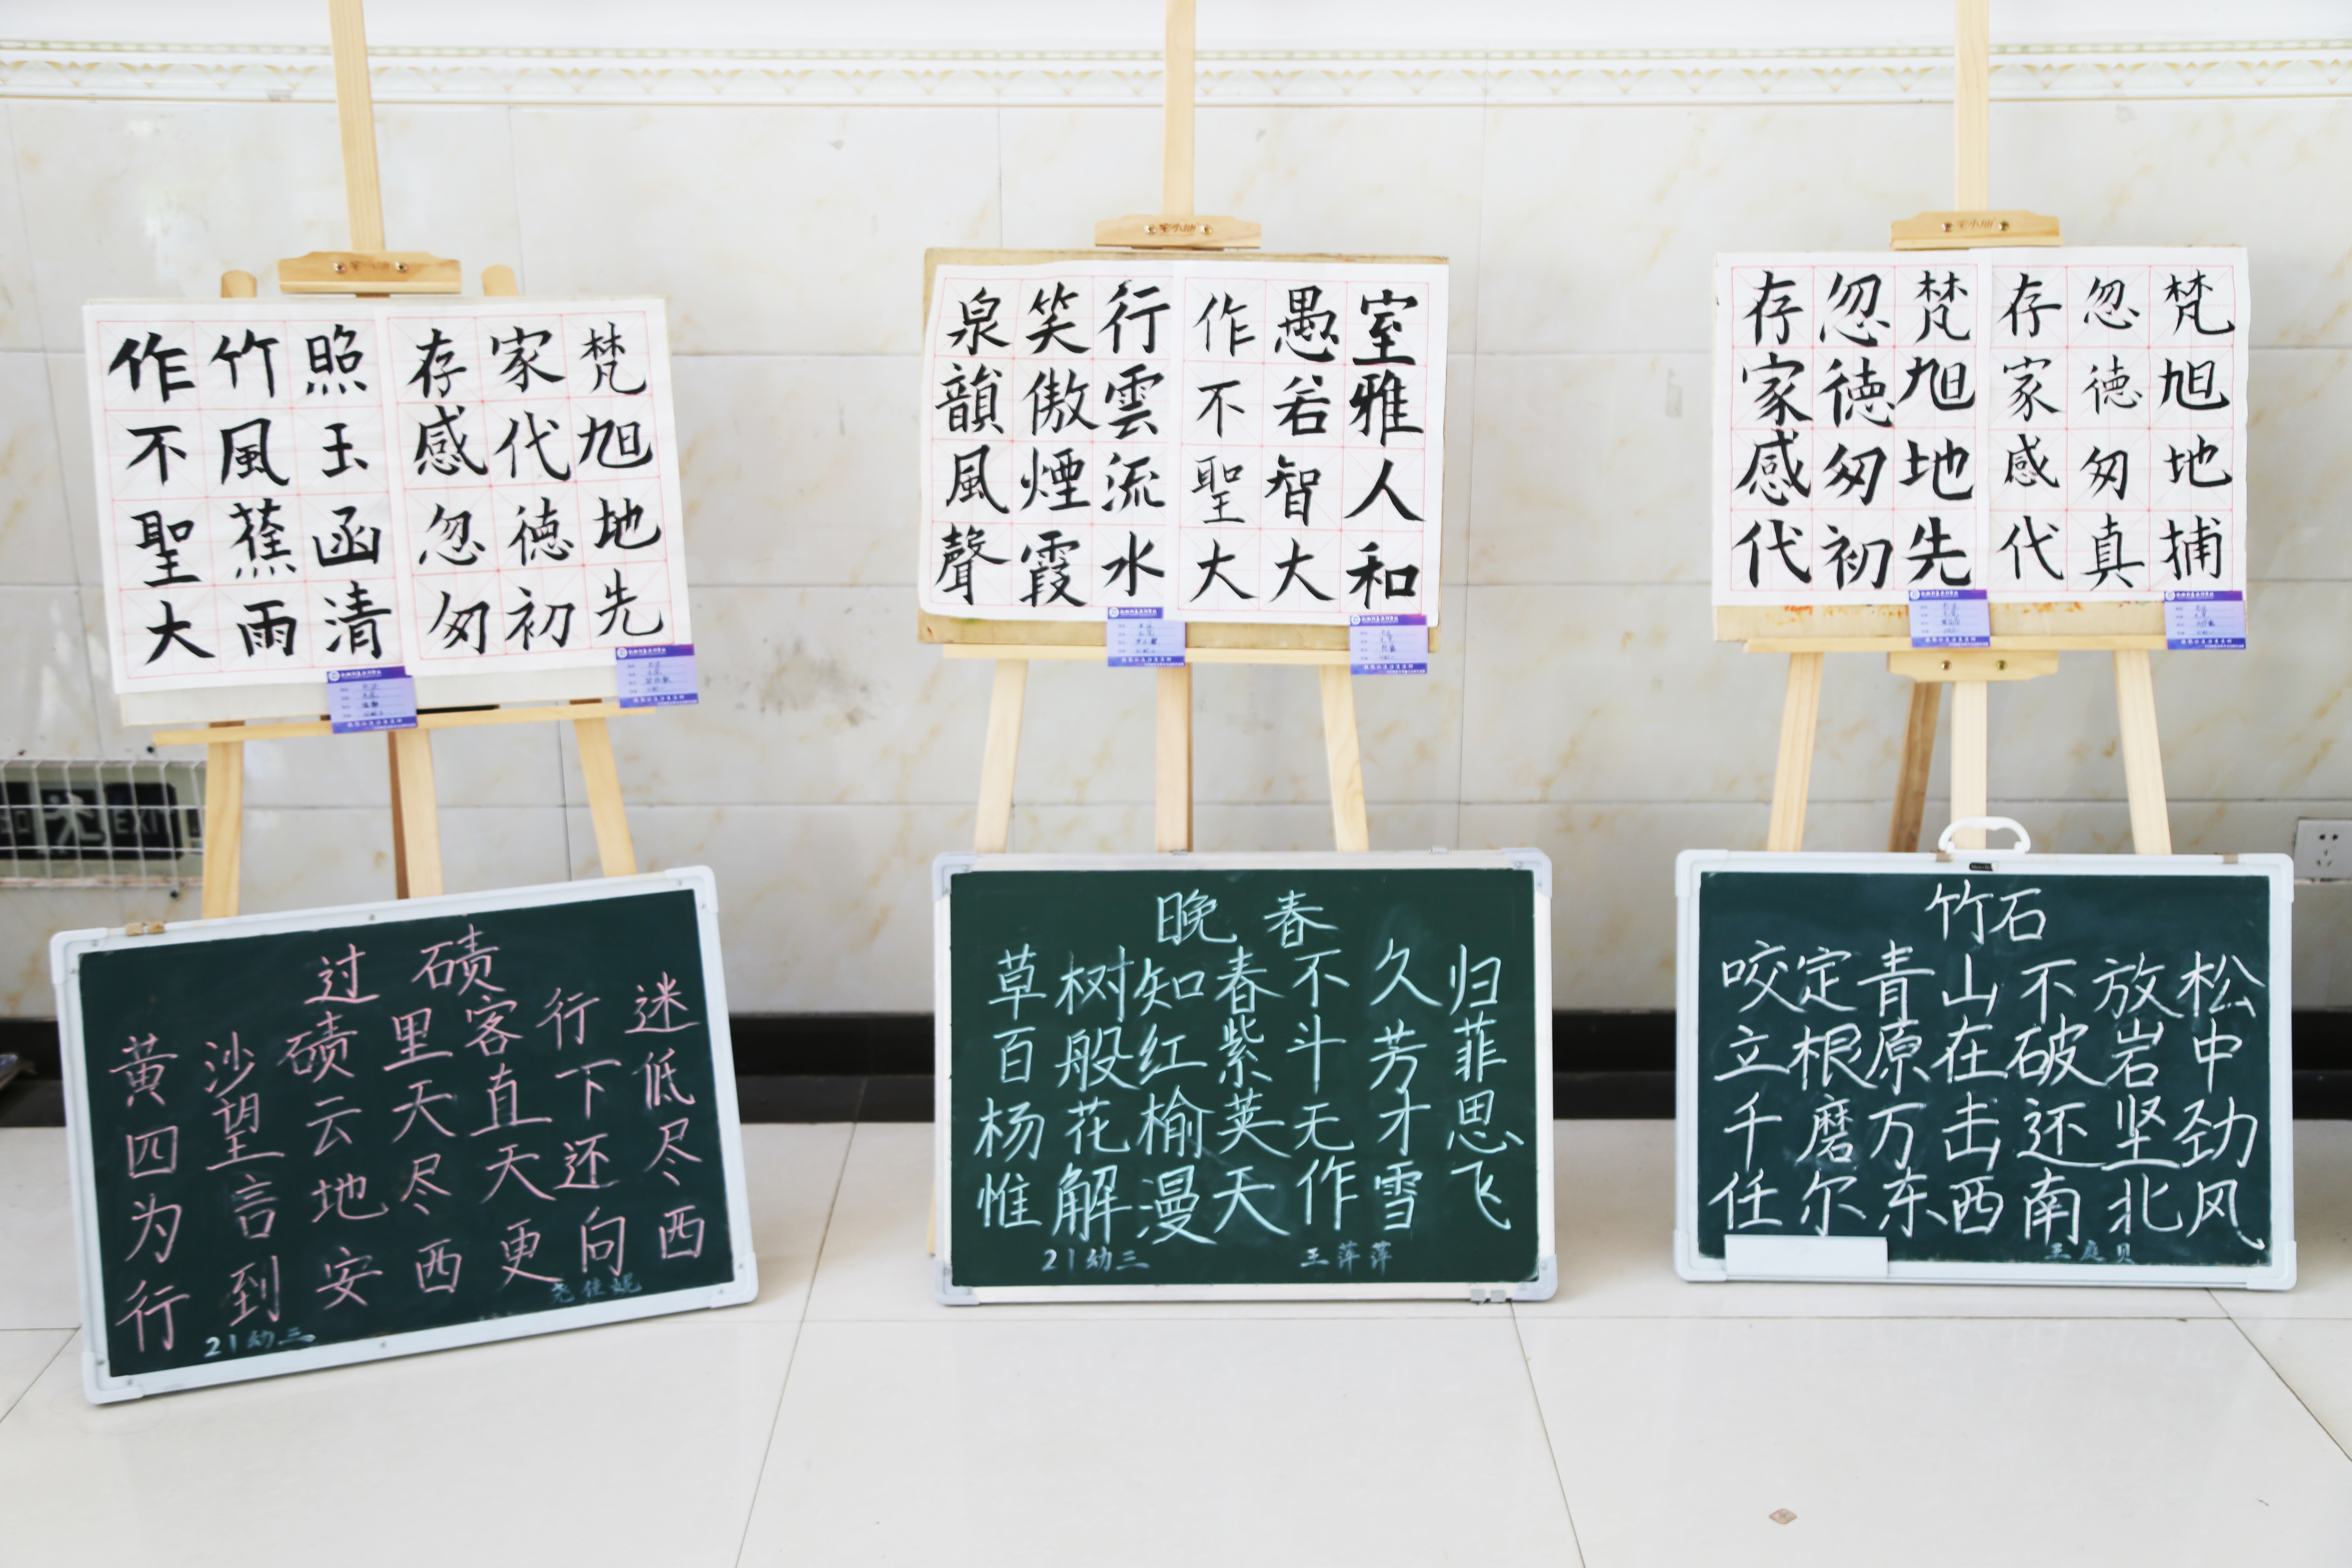 照玉函清
竹風蕉雨
作不聖大
梵旭地先
家代徳初
存感忽匆
行雲流水
笑傲煙霞
泉韻風聲
室雅人和
愚若智大
作不聖大
梵旭地先
忽徳匆初
存家感代
梵旭地捕
忽徳匆真
存家感代
EXIT
过碛
黄沙碛里客行迷
四望云天直下低
为言地尽天还尽
行到安西更向西
21幼三
晚春
草树知春不久归
百般红紫斗芳菲
杨花榆荚无才思
惟解漫天作雪飞
21幼三 王萍萍
竹石
咬定青山不放松
立根原在破岩中
千磨万击还坚劲
任尔东西南北风
王庭贝